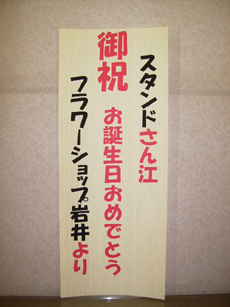 スタンドさん江
御祝 お誕生日おめでとう
フラワーショップ岩井より